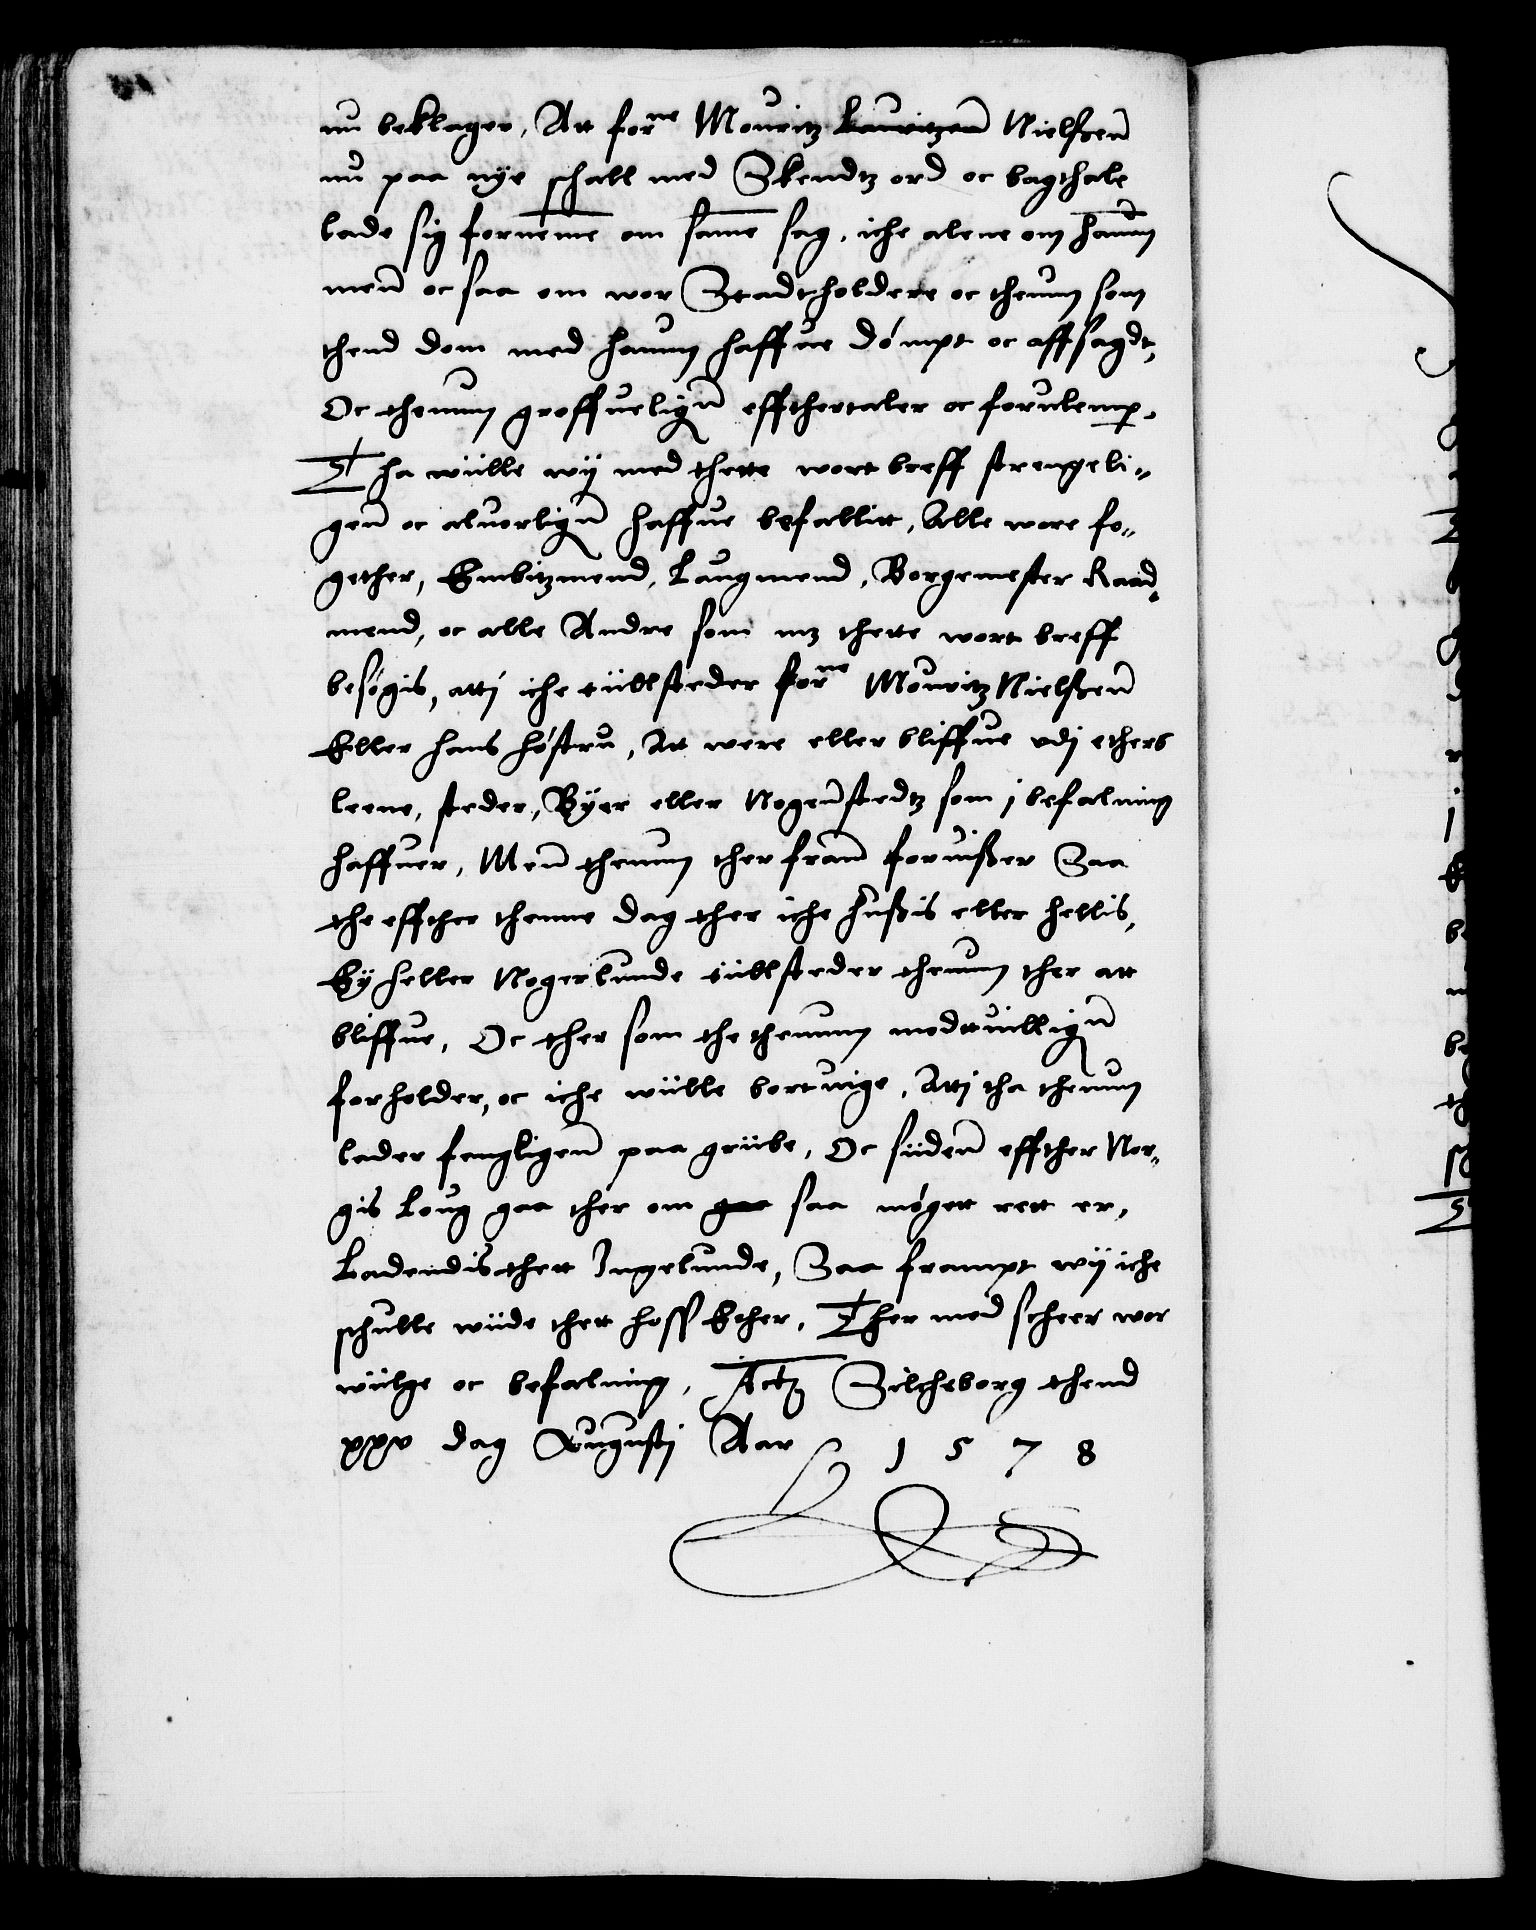 nu beklager, Att forne Mouritz Lauritzenn Nielssenn
nu paa nye schall med Skendtz ord oc bagthale
lade sig forneme om same sag, iche alene om hanum
menn oc saa om wor Stadtholdere oc thenum som
thend dom med hanum haffue dømpt oc affsagdt,
Oc thenum groffueligenn effthertaler oc forulemper.
Tha wülle wij med thette wort breff strengeli-
genn oc aluorligenn haffue befallitt, Alle wore fo-
gether, Embitzmend, Laugmend, Borgemester Raad-
mend, oc alle Andre som mz thette wort breff
besøgis, atti iche tüllsteder forne Mouritz Nielssenn
Eller hans høstru, Att were eller bliffue vdj ethers
leene, steder, Byer eller Nogenstedtz som j befalning
haffuer, Menn thenum ther frann foruisser Saa
the effther thenne dag ther iche hussis eller hellis,
Ey heller Nogerlunde tüllsteder thenum ther att
bliffue, Oc ther som the thenum modtuilligenn
forholder, oc iche wülle bortuige, Attj tha thenum
lader fengligenn paa grübe, Oc südenn effther Nor-
gis Loug gaa ther om gaa saa møgett rett er,
Ladendis thett Ingelunde, Saa frampt wij iche
schulle wüde thett hoss Ether, Ther med scheer wor
wülge oc befalning, Actz Silcheborg thend
xxv dag Augustj Aar 1578